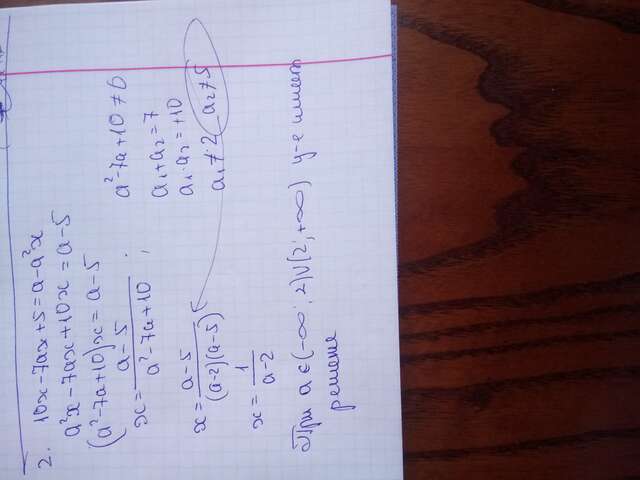 2. 10x-7ax+5=a-a²x
a²x-7ax+10x=a-5
(a²-7a+10)x=a-5
x=\frac{a-5}{a²-7a+10};
a²-7a+10≠0
a₁+a₂=7
a₁·a₂=+10
a₁≠2 a₂≠5
x=\frac{a-5}{(a-2)(a-5)}
x=\frac{1}{a-2}
При a∈(-∞;2)∪(2;+∞) у-е имеет
решение